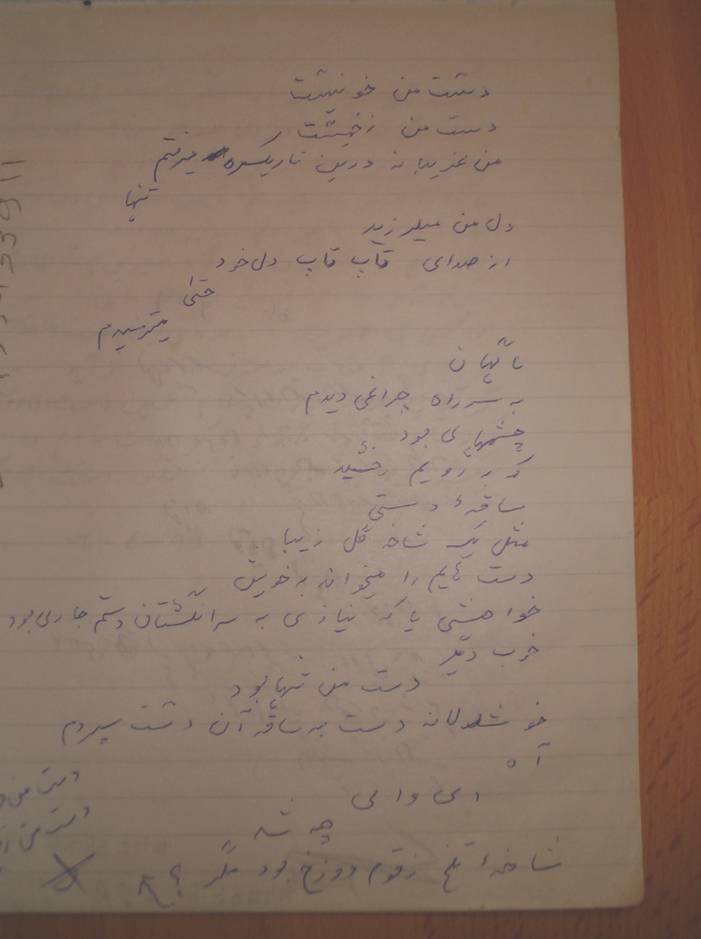 دستت من خونیست
دست من زخمیست
من غریبانه درین تاریکی ره میرفتم
تنها
دل من میلرزید
از صدای قاپ قاپ دل خود
حتی
میترسیدم
ناگهان
به سر راه چراغی دیدم
چشمهای بود
که به رویم رخشید
ساقهٔ دستی
مثل یک شاخه گل زیبا
دست هایم را میخواند به خویش
خواهشی یا که نیازی به سر انگشتان دستم جاری بود
خوب دیگر
دست من تنها بود
خوشدلانه دست به ساقه آن دست سپردم
آه
ای وای
چه شد
شاخهٔ تلخ زقوم دوزخ بود مگر ؟
دست من
دست من